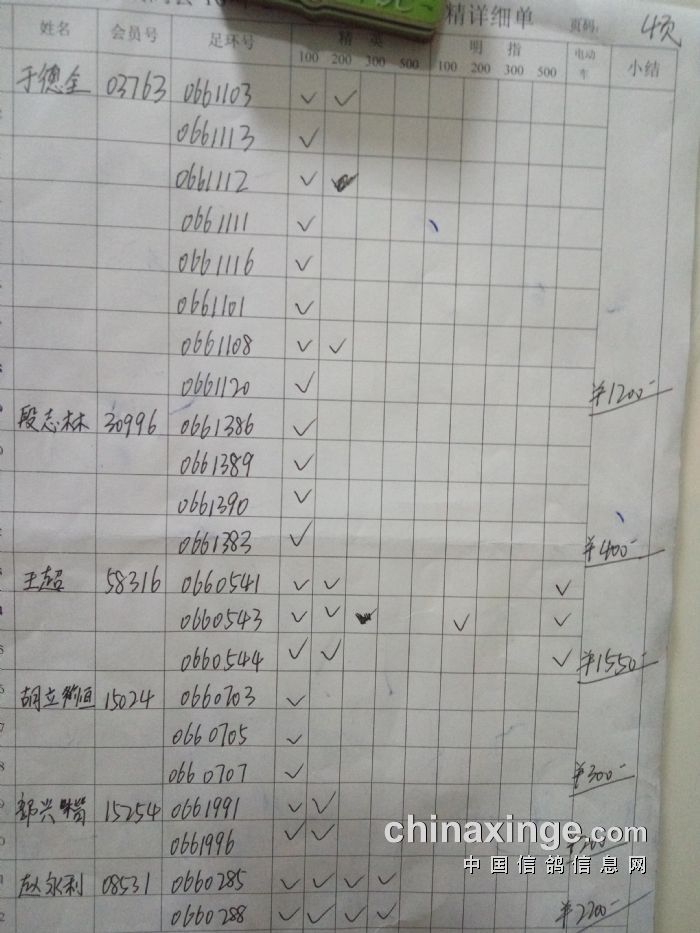 精详细单 页码: 4页
姓名 会员号 足环号 精英 明指 电动车 小结
100 200 300 500 100 200 300 500
于德全 03763 0661103 ✓ ✓
0661113 ✓
0661112 ✓
0661111 ✓
0661116 ✓
0661101 ✓
0661108 ✓ ✓
0661120 ✓ ¥1200-
段志林 30996 0661386 ✓
0661389 ✓
0661390 ✓
0661383 ✓ ¥400-
王超 58316 0660541 ✓ ✓ ✓
0660543 ✓ ✓ ✓ ✓
0660544 ✓ ✓ ✓ ¥1550-
胡立 15024 0660703 ✓
0660705 ✓
0660707 ✓ ¥300-
兴 15254 0661991 ✓ ✓
0661996 ✓ ✓
赵永利 08531 0660285 ✓ ✓ ✓ ✓
0660288 ✓ ✓ ✓ ✓ ¥2200-
chinaxinge.com
中国信鸽信息网